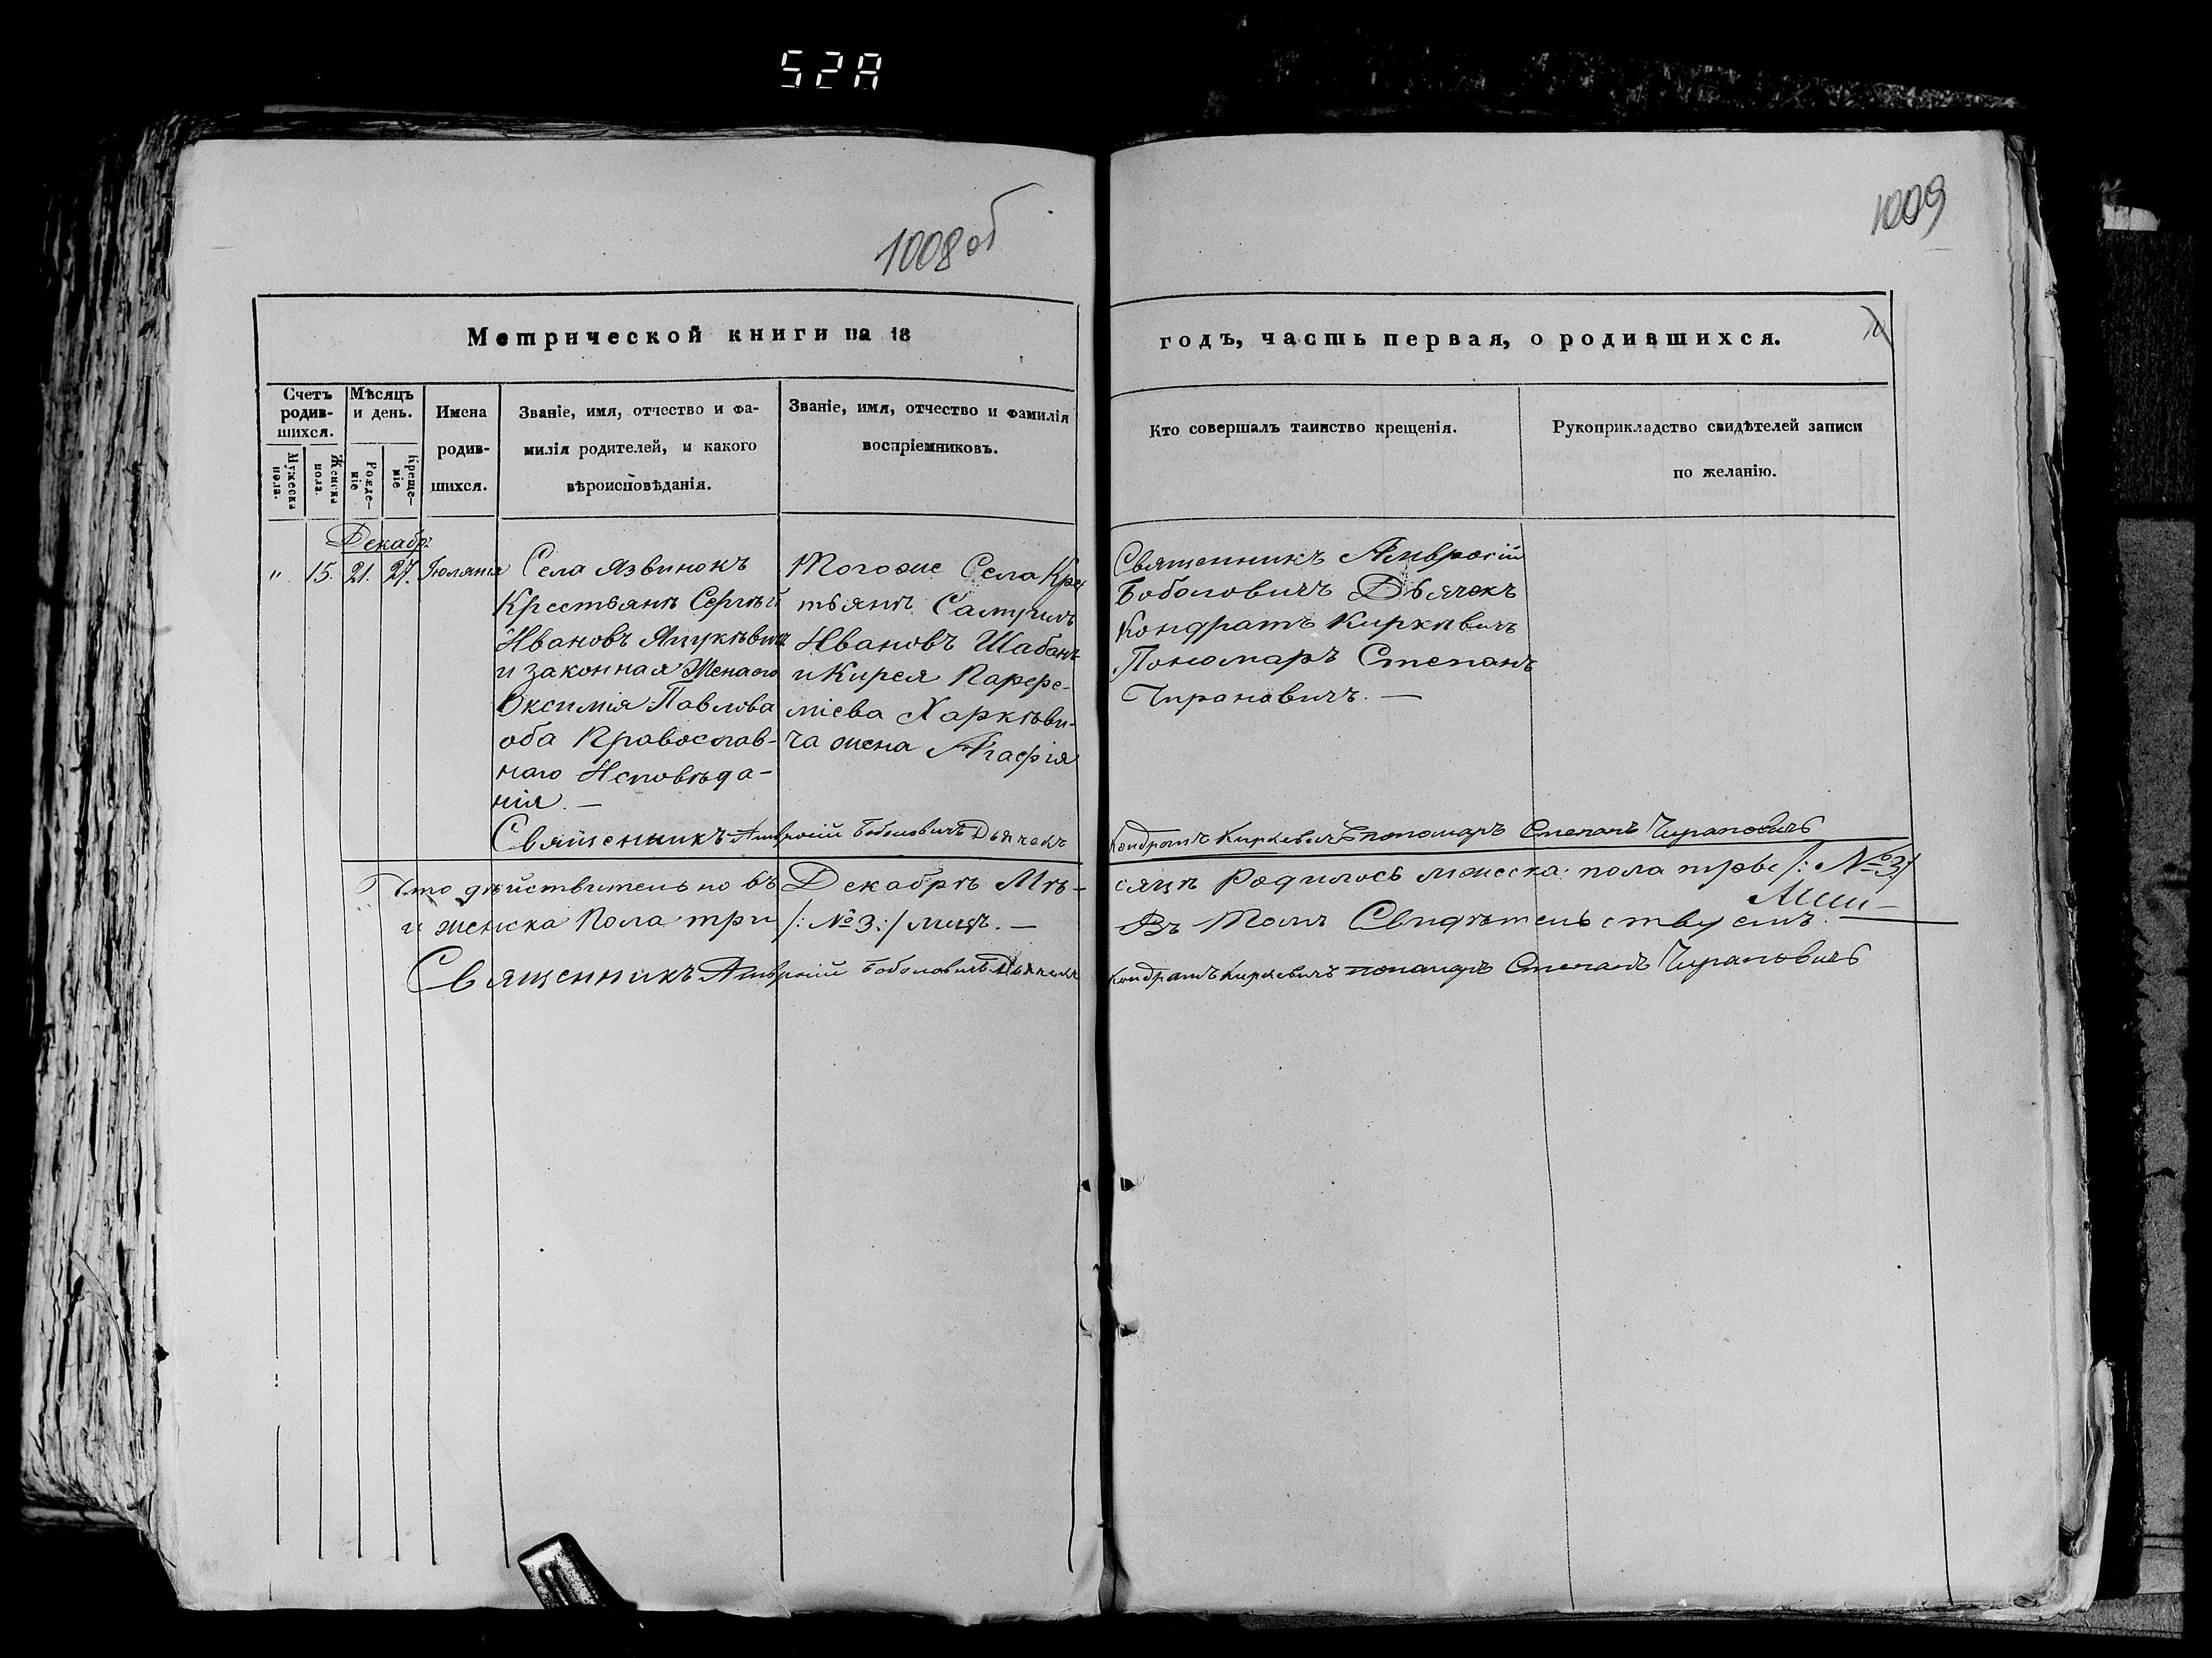 52A
1008об
1009
Метрической книги на 18
годъ, часть первая, о родившихся.
Счетъ родив-шихся.
Мѣсяцъ и день.
Имена родив-шихся.
Званіе, имя, отчество и фа-милія родителей, и какого вѣроисповѣданія.
Званіе, имя, отчество и фамилія воспріемниковъ.
Кто совершалъ таинство крещенія.
Рукоприкладство свидѣтелей записи по желанію.
Мужеска пола.
Женска пола.
Рожде-ніе
Креще-ніе.
Декабр:
" 15. 21. 27. Іюлянія
Села Язвинокъ
Крестьянъ Сергѣй
Ивановъ Яцукѣвичъ
и законная Жена его
Оксимія Павлова
оба Православ-
наго Исповѣда-
нія. —
Тогоже Села Крес
тьянъ Самуилъ
Ивановъ Шабанъ
и Кирея Парфе-
міева Харкѣви-
ча жена Агафія
Священникъ Амвросій
Боболовичъ Дьячекъ
Кондратъ Киркевичъ
Пономаръ Степанъ
Чирановичъ. —
Священникъ Амвросій Боболовичъ Дьячекъ Кондратъ Киркевичъ пономаръ Степанъ Чирановичъ
Что дѣйствительно въ Декабрѣ Мѣ-сяцѣ Родилось мужеска пола трое /: №3:/
и женска Пола три /: №3:/ лицъ. — Въ томъ Свидѣтельствуемъ. —
Священникъ Амвросій Боболовичъ Дьячекъ Кондратъ Киркевичъ пономаръ Степанъ Чирановичъ